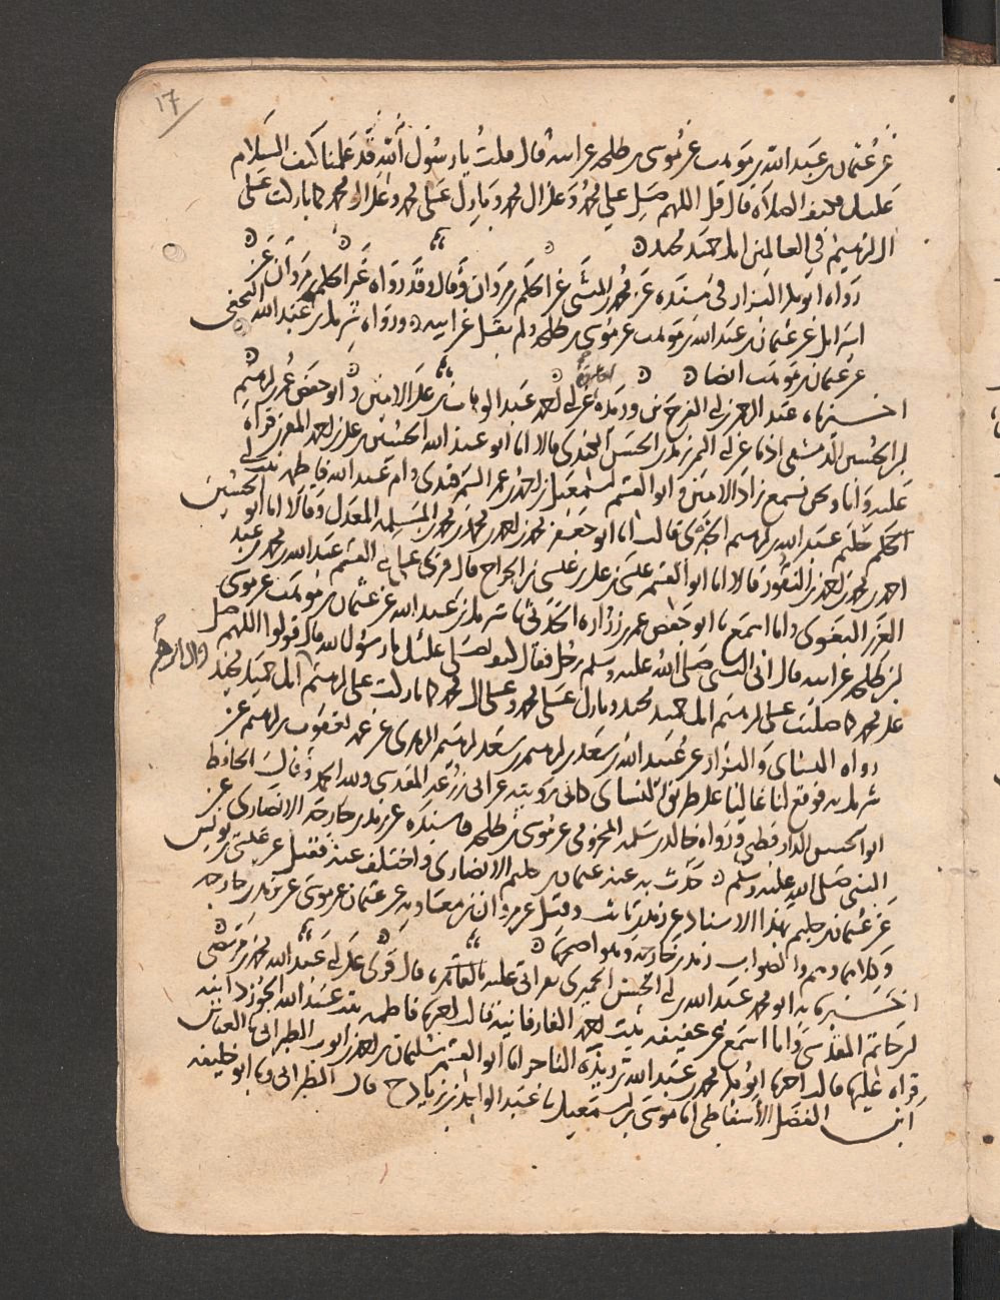 ١٧
عن عثمان بن عبد الله بن موهب عن موسى بن طلحة عن ابيه قال قلت يا رسول الله قد علمنا كيف السلام
عليك فكيف الصلاة قال قل اللهم صل على محمد وعلى ال محمد وبارك على محمد وعلى ال محمد كما باركت على
ال ابرهيم في العالمين انك حميد مجيد
رواه ابو بكر البزار في مسنده عن محمد بن المثنى عن الحكم بن مروان وقال وقد رواه غير الحكم بن مروان عن
اسرايل عن عثمان بن عبد الله بن موهب عن موسى بن طلحة ولم يقل عن ابيه ورواه شريك بن عبد الله النخعي
عن عثمان بن موهب ايضا
اخبرناه عبد العزيز بن ابي الفرج بن عبد الوهاب بن علي الامين وابو حفص عمر بن ابرهيم
ابن الحسين الدمشقي اذنا عن ابي الحسن قالا انا ابو عبد الله الحسين بن علي بن احمد المقرئ قراءة
عليه وانا ونحن نسمع زاد الامين وابو القسم اسمعيل بن احمد بن عمر السمرقندي وام عبد الله فاطمة بنت ابي
الحكم عبد الله بن ابرهيم قالت انا ابو جعفر محمد بن احمد بن محمد بن المسلمة المعدل وقالا انا ابو الحسين
احمد بن محمد بن احمد بن النقور قالا انا ابو القسم عيسى بن علي بن عيسى بن الجراح قال قرئ على ابي القسم عبد الله بن محمد بن عبد
العزيز البغوي وانا اسمع نا ابو حفص عمر بن زرارة الحدثي نا شريك بن عبد الله عن عثمان بن موهب عن موسى
ابن طلحة عن ابيه قال اتى النبي صلى الله عليه وسلم رجل فقال كيف نصلي عليك يا رسول الله قال قولوا اللهم صل
على محمد كما صليت على ابرهيم انك حميد مجيد وبارك على محمد وعلى ال محمد كما باركت على ابرهيم انك حميد مجيد
وال ابرهيم
رواه النسائي والبزار عن عبيد الله بن سعد بن ابرهيم بن سعد بن ابرهيم الزهري عن عمه يعقوب بن ابرهيم عن
شريك به فوقع لنا عاليا على طريق النسائي كاني رويته عن ابي زرعة المقدسي ولله الحمد وقال الحافظ
ابو الحسن الدارقطني ورواه خالد بن سلمة المخزومي عن موسى بن طلحة فاسنده عن زيد بن خارجة الانصاري عن
النبي صلى الله عليه وسلم حدث به عنه عثمان بن حكيم الانصاري واختلف عنه فقيل عن عيسى بن يونس
عن عثمان بن حكيم بهذا الاسناد عن زيد بن ثابت وقيل عن مروان بن معاوية عن عثمان عن موسى عن يزيد بن خارجة
وكلاهما وهم والصواب زيد بن خارجة وهو اصحها
اخبرنا به ابو محمد عبد الله بن ابي الحسن الحميري بقراتي عليه بالقاهرة قال قرئ على ابي عبد الله محمد بن مرتضى
ابن حاتم المقدسي وانا اسمع عن عفيفة بنت احمد الفارفانية قالت اخبرتنا فاطمة بنت عبد الله الجوزدانية
قراءة عليها قالت اخبرنا ابو بكر محمد بن عبد الله بن ريذة التاجر انا ابو القسم سليمان بن احمد بن ايوب الطبراني نا العباس
ابن الفضل الاسفاطي نا موسى بن اسمعيل نا عبد الواحد بن زياد ح قال الطبراني ونا ابو خليفة